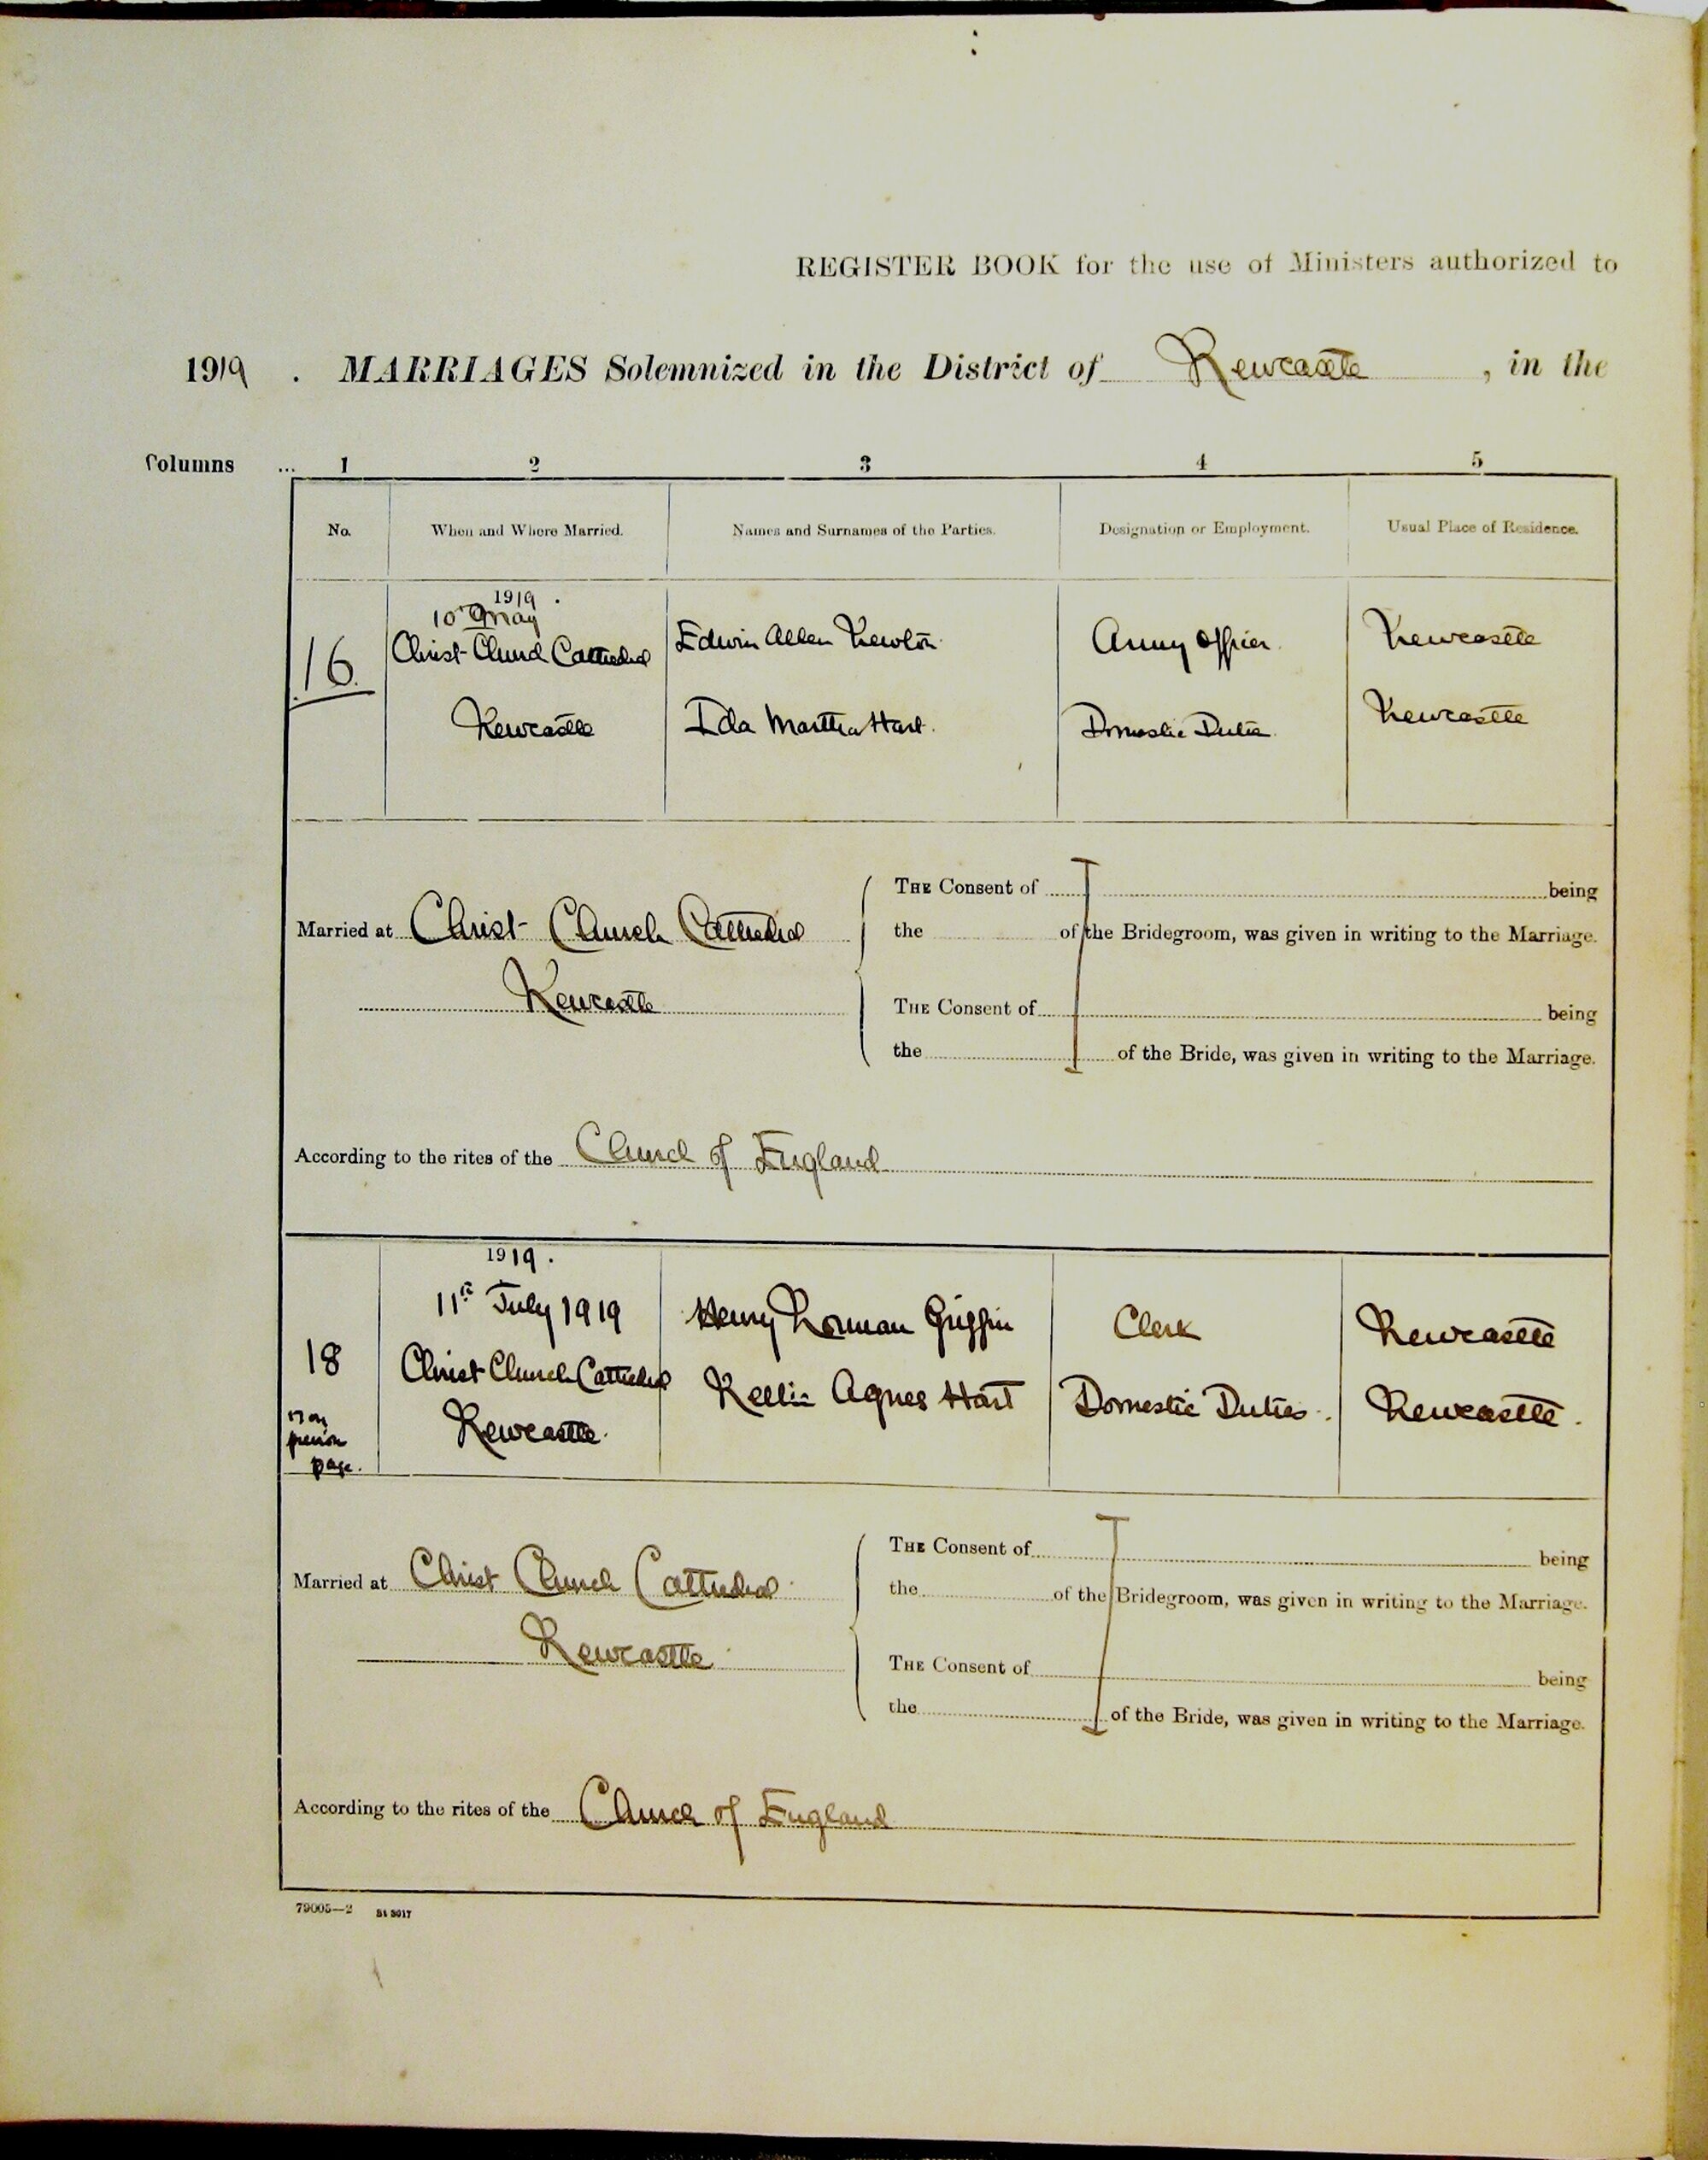 REGISTER BOOK for the use of Ministers authorized to
1919 . MARRIAGES Solemnized in the District of Newcastle , in the
Columns ... 1 2 3 4 5
No. When and Where Married. Names and Surnames of the Parties. Designation or Employment. Usual Place of Residence.
1919 .
10th May
16. Christ Church Cathedral Edwin Allen Newton Army Officer. Newcastle
Newcastle Ida Martha Hart. Domestic Duties. Newcastle
THE Consent of being
Married at Christ Church Cathedral the of the Bridegroom, was given in writing to the Marriage.
Newcastle THE Consent of being
the of the Bride, was given in writing to the Marriage.
According to the rites of the Church of England
1919.
11th July 1919 Henry Norman Griffin Clerk Newcastle
18 Christ Church Cathedral Nellie Agnes Hart Domestic Duties. Newcastle.
Newcastle.
17 on
previous
page.
THE Consent of being
Married at Christ Church Cathedral the of the Bridegroom, was given in writing to the Marriage.
Newcastle THE Consent of being
the of the Bride, was given in writing to the Marriage.
According to the rites of the Church of England
79005—2 St 8017